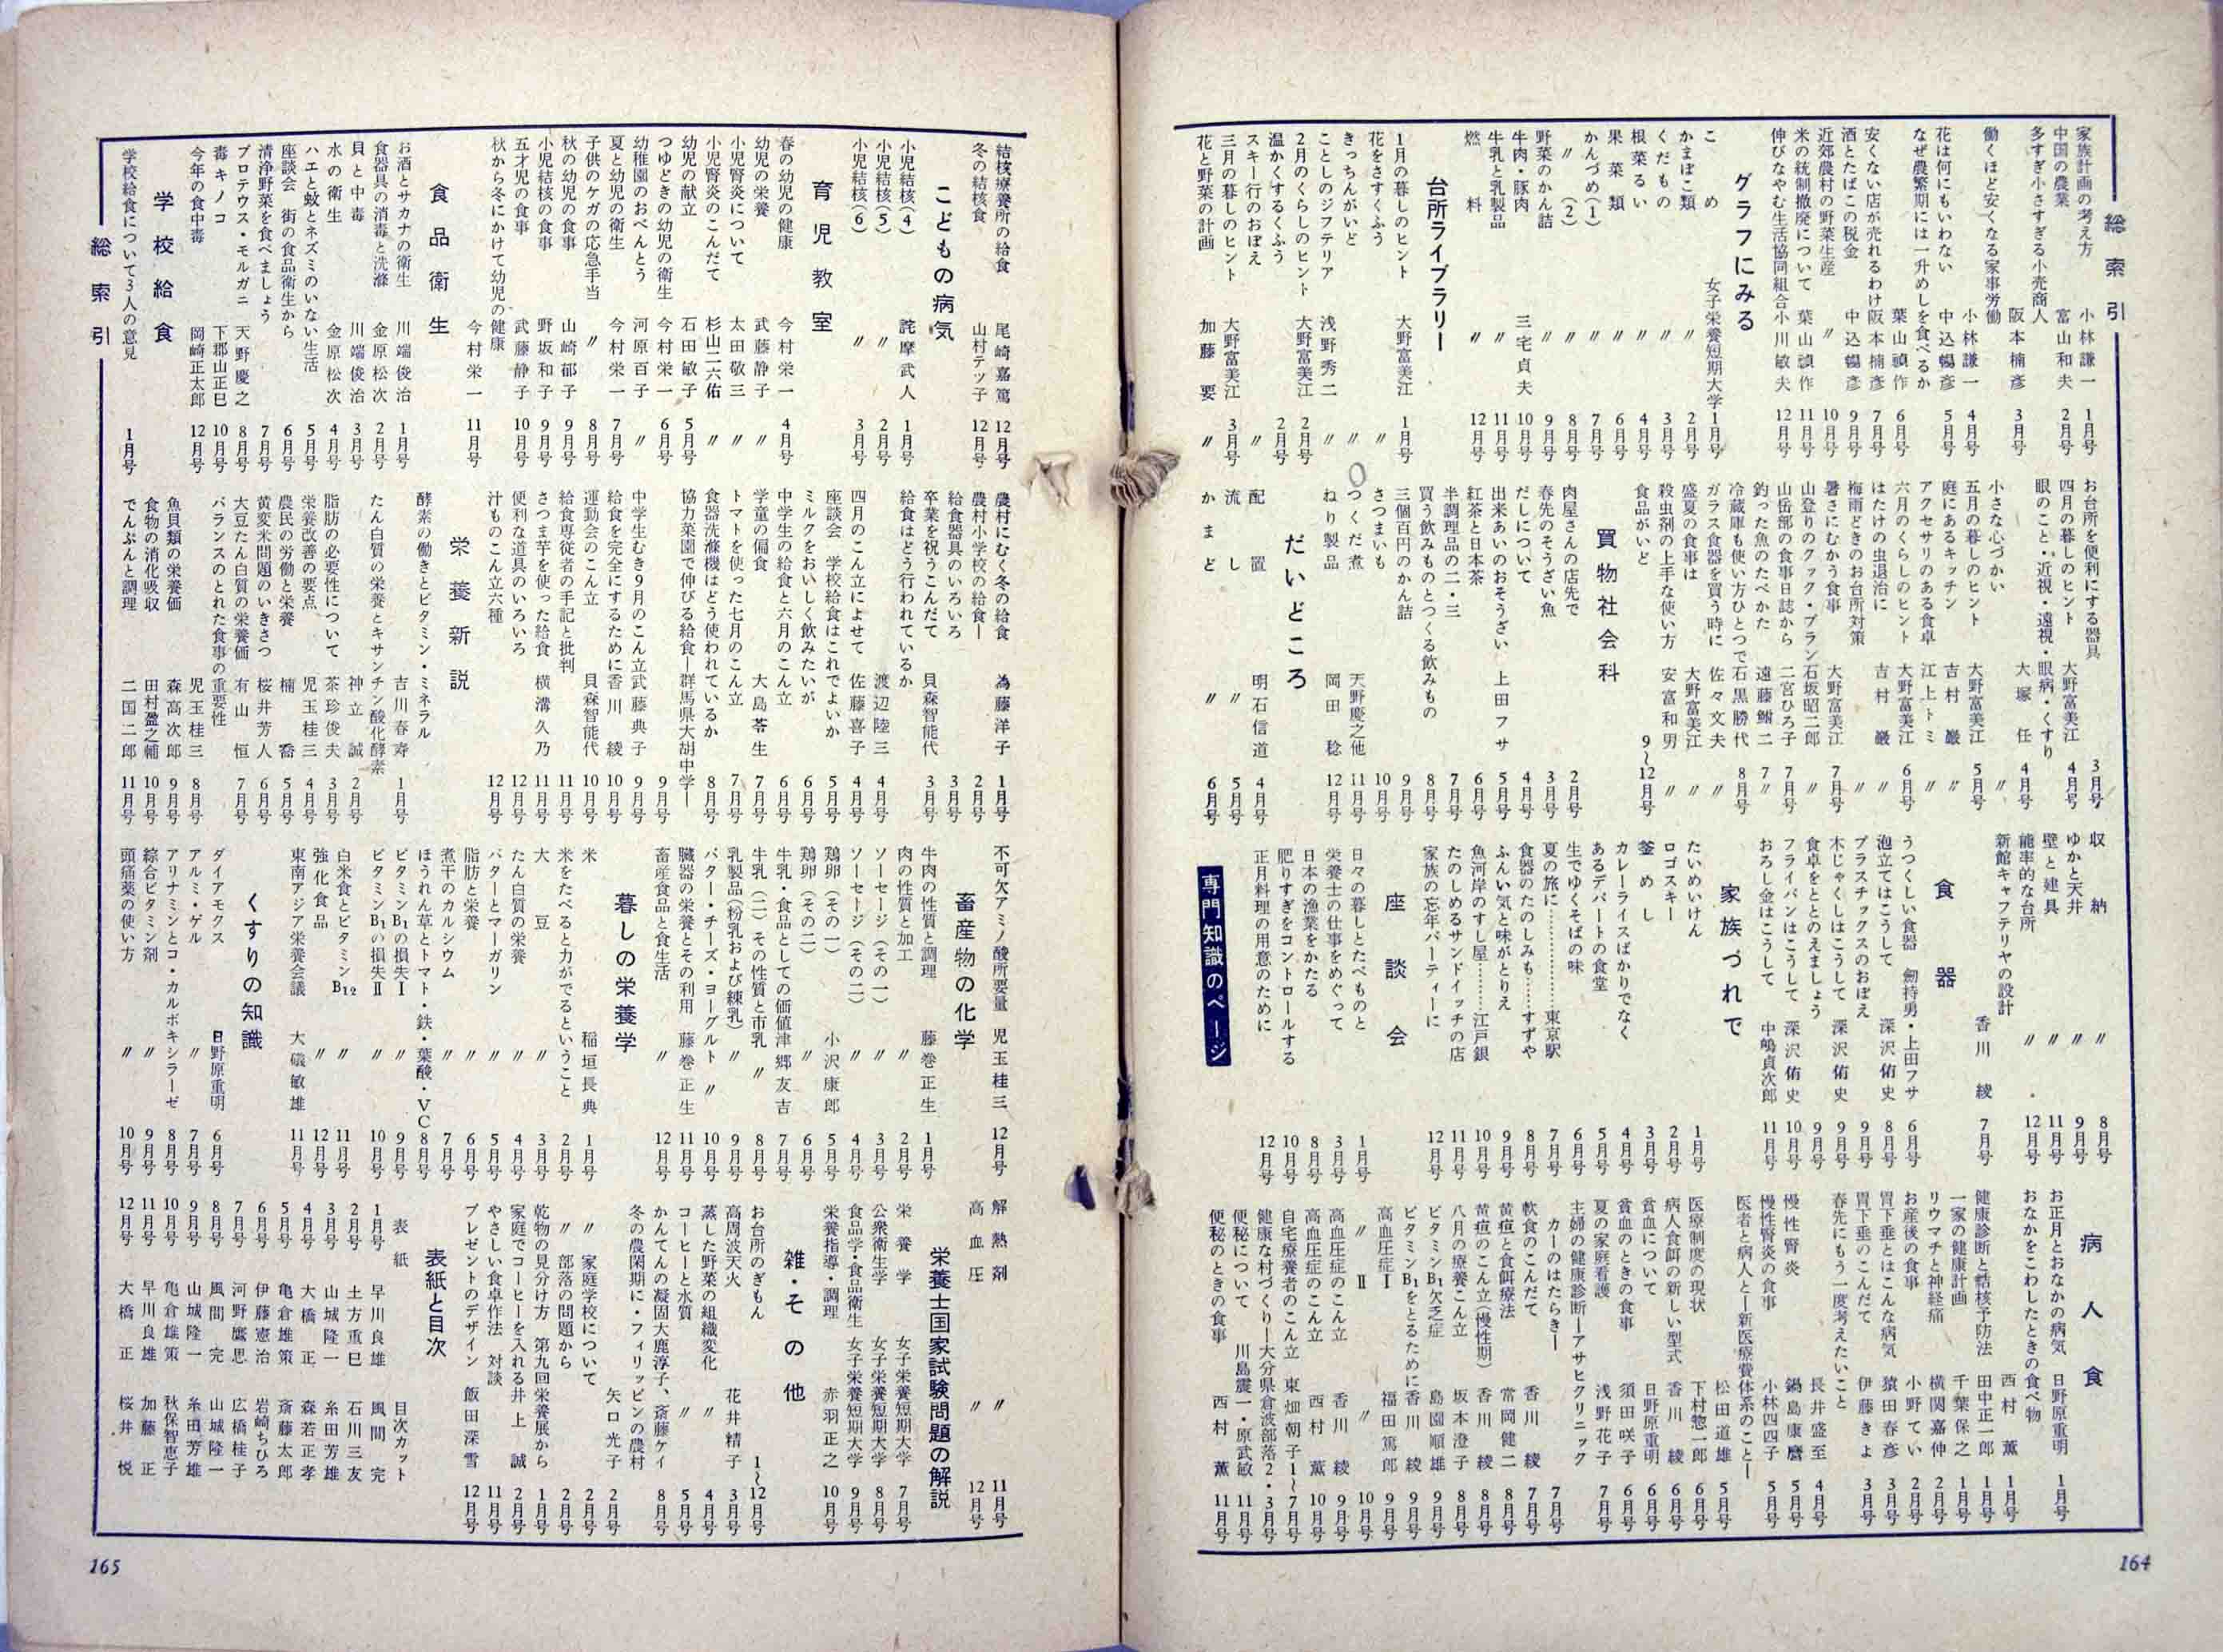 総索引
家族計画の考え方 小林謙一 1月号
中国の農業 富山和夫 2月号
多すぎ小さすぎる小売商人
阪本楠彦 3月号
働くほど安くなる家事労働
小林謙一 4月号
花は何にもいわない 中込暢彦 5月号
なぜ農繁期には一升めしを食べるか
葉山禎作 6月号
安くない店が売れるわけ 阪本楠彦 7月号
酒とたばこの税金 中込暢彦 9月号
近郊農村の野菜生産 〃 10月号
米の統制撤廃について 葉山禎作 11月号
伸びなやむ生活協同組合 小川敏夫 12月号
グラフにみる
こめ 女子栄養短期大学 1月号
かまぼこ類 〃 2月号
くだもの 〃 3月号
根菜るい 〃 4月号
果菜類 〃 6月号
かんづめ(1) 〃 7月号
〃 (2) 〃 8月号
野菜のかん詰 〃 9月号
牛肉・豚肉 三宅貞夫 10月号
牛乳と乳製品 〃 11月号
燃料 〃 12月号
台所ライブラリー
1月の暮しのヒント 大野富美江 1月号
花をさすくふう 〃
きっちんがいど 〃
ことしのジフテリア 浅野秀二 〃
2月のくらしのヒント 大野富美江 2月号
温かくするくふう 2月号
スキー行のおぼえ 〃
三月の暮しのヒント 大野富美江 3月号
花と野菜の計画 加藤要 〃
お台所を便利にする器具 3月号
四月の暮しのヒント 大野富美江 4月号
眼のこと・近視・遠視・眼病・くすり
大塚任 4月号
小さな心づかい 〃
五月の暮しのヒント 大野富美江 5月号
庭にあるキッチン 吉村巌 〃
アクセサリのある食卓 江上トミ 〃
六月のくらしのヒント 大野富美江 6月号
はたけの虫退治に 吉村巌 〃
梅雨どきのお台所対策 〃
暑さにむかう食事 大野富美江 7月号
山登りのクック・プラン 石坂昭二郎 〃
山岳部の食事日誌から 二宮ひろ子 7月号
釣った魚のたべかた 遠藤鮒二 7〃
冷蔵庫も使い方ひとつで 石黒勝代 8月号
ガラス食器を買う時に 佐々文夫 〃
盛夏の食事は 大野富美江 〃
殺虫剤の上手な使い方 安富和男 〃
食品がいど 9〜12月号
買物社会科
肉屋さんの店先で 2月号
春先のそうざい魚 3月号
だしについて 4月号
出来あいのおそうざい 上田フサ 5月号
紅茶と日本茶 6月号
半調理品の二・三 7月号
買う飲みものとつくる飲みもの 8月号
三個百円のかん詰 9月号
さつまいも 10月号
つくだ煮 天野慶之他 11月号
ねり製品 岡田稔 12月号
だいどころ
配置 明石信道 4月号
流し 〃 5月号
かまど 〃 6月号
収納 〃 8月号
ゆかと天井 〃 9月号
壁と建具 〃 11月号
能率的な台所 〃 12月号
新館キャフテリヤの設計
香川綾 7月号
食器
うつくしい食器 劒持勇・上田フサ 6月号
泡立てはこうして 深沢侑史 8月号
プラスチックスのおぼえ 9月号
木じゃくしはこうして 深沢侑史 9月号
食卓をととのえましょう 9月号
フライパンはこうして 深沢侑史 10月号
おろし金はこうして 中嶋貞次郎 11月号
家族づれで
たいめいけん 1月号
ロゴスキー 2月号
釜めし 3月号
カレーライスばかりでなく 4月号
あるデパートの食堂 5月号
生でゆくそばの味 6月号
夏の旅に…………東京駅 7月号
食器のたのしみも……すずや 8月号
ふんい気と味がとりえ 9月号
魚河岸のすし屋……江戸銀 10月号
たのしめるサンドイッチの店 11月号
家族の忘年パーティーに 12月号
座談会
日々の暮しとたべものと 1月号
栄養士の仕事をめぐって 3月号
日本の漁業をかたる 8月号
肥りすぎをコントロールする 10月号
正月料理の用意のために 12月号
専門知識のページ
病人食
お正月とおなかの病気 日野原重明 1月号
おなかをこわしたときの食べ物
西村薫 1月号
健康診断と結核予防法 田中正一郎 1月号
一家の健康計画 千葉保之 1月号
リウマチと神経痛 横関嘉伸 2月号
お産後の食事 小野てい 2月号
胃下垂とはこんな病気 猿田春彦 3月号
胃下垂のこんだて 伊藤きよ 3月号
春先にもう一度考えたいこと
長井盛至 4月号
慢性腎炎 鍋島康麿 5月号
慢性腎炎の食事 小林四四子 5月号
医者と病人と―新医療費体系のこと―
松田道雄 5月号
医療制度の現状 下村惣一郎 6月号
病人食餌の新しい型式 香川綾 6月号
貧血について 日野原重明 6月号
貧血のときの食事 須田咲子 6月号
夏の家庭看護 浅野花子 7月号
主婦の健康診断―アサヒクリニック
カーのはたらき― 7月号
軟食のこんだて 香川綾 7月号
黄疸と食餌療法 常岡健二 8月号
黄疸のこん立(慢性期) 香川綾 8月号
八月の療養こん立 坂本澄子 8月号
ビタミンB₁欠乏症 島園順雄 9月号
ビタミンB₁をとるために 香川綾 9月号
高血圧症Ⅰ 福田篤郎 9月号
〃 Ⅱ 〃 10月号
高血圧症のこん立 香川綾 9月号
高血圧症のこん立 西村薫 10月号
自宅療養者のこん立 東畑朝子 1〜7月号
健康な村づくり―大分県倉波部落 2・3月号
便秘について 川島震一・原武敏 11月号
便秘のときの食事 西村薫 11月号
164
結核療養所の給食 尾崎嘉篤 12月号
冬の結核食 山村テツ子 12月号
こどもの病気
小児結核(4) 詫摩武人 1月号
小児結核(5) 〃 2月号
小児結核(6) 〃 3月号
育児教室
春の幼児の健康 今村栄一 4月号
幼児の栄養 武藤静子 〃
小児腎炎について 太田敬三 〃
小児腎炎のこんだて 杉山二六佑 〃
幼児の献立 石田敏子 5月号
つゆどきの幼児の衛生 今村栄一 6月号
幼稚園のおべんとう 河原百子 〃
夏と幼児の衛生 今村栄一 7月号
子供のケガの応急手当 〃 8月号
秋の幼児の食事 山崎郁子 9月号
小児結核の食事 野坂和子 9月号
五才児の食事 武藤静子 10月号
秋から冬にかけて幼児の健康
今村栄一 11月号
食品衛生
お酒とサカナの衛生 川端俊治 1月号
食器具の消毒と洗滌 金原松次 2月号
貝と中毒 川端俊治 3月号
水の衛生 金原松次 4月号
ハエと蚊とネズミのいない生活 5月号
座談会 街の食品衛生から 6月号
清浄野菜を食べましょう 7月号
プロテウス・モルガニ 天野慶之 8月号
毒キノコ 下郡山正巳 10月号
今年の食中毒 岡崎正太郎 12月号
学校給食
学校給食について3人の意見 1月号
総索引
農村にむく冬の給食 為藤洋子 1月号
農村小学校の給食― 2月号
給食器具のいろいろ 3月号
卒業を祝うこんだて 貝森智能代 3月号
給食はどう行われているか
渡辺陸三 4月号
四月のこん立によせて 佐藤喜子 4月号
座談会 学校給食はこれでよいか 5月号
ミルクをおいしく飲みたいが 6月号
中学生の給食と六月のこん立 6月号
学童の偏食 大島苓生 7月号
トマトを使った七月のこん立 7月号
食器洗滌機はどう使われているか 8月号
協力菜園で伸びる給食―群馬県大胡中学―
9月号
中学生むき9月のこん立 武藤典子 9月号
給食を完全にするために 香川綾 10月号
運動会のこん立 貝森智能代 10月号
給食専従者の手記と批判 11月号
さつま芋を使った給食 横溝久乃 11月号
便利な道具のいろいろ 12月号
汁ものこん立六種 12月号
栄養新説
酵素の働きとビタミン・ミネラル
吉川春寿 1月号
たん白質の栄養とキサンチン酸化酵素
神立誠 2月号
脂肪の必要性について 茶珍俊夫 3月号
栄養改善の要点 児玉桂三 4月号
農民の労働と栄養 楠喬 5月号
黄変米問題のいきさつ 桜井芳人 6月号
大豆たん白質の栄養価 有山恒 7月号
バランスのとれた食事の重要性
児玉桂三 8月号
魚貝類の栄養価 森高次郎 9月号
食物の消化吸収 田村盈之輔 10月号
でんぷんと調理 二国二郎 11月号
不可欠アミノ酸所要量 児玉桂三 12月号
畜産物の化学
牛肉の性質と調理 藤巻正生 1月号
肉の性質と加工 〃 2月号
ソーセージ(その一) 〃 3月号
ソーセージ(その二) 〃 4月号
鶏卵(その一) 小沢康郎 5月号
鶏卵(その二) 〃 6月号
牛乳・食品としての価値 津郷友吉 7月号
牛乳(二)その性質と市乳 〃 8月号
乳製品(粉乳および練乳) 〃 9月号
バター・チーズ・ヨーグルト 〃 10月号
臓器の栄養とその利用 藤巻正生 11月号
畜産食品と食生活 〃 12月号
暮しの栄養学
米 稲垣長典 1月号
米をたべると力がでるということ 2月号
大豆 〃 3月号
たん白質の栄養 〃 4月号
バターとマーガリン 〃 5月号
脂肪と栄養 〃 6月号
煮干のカルシウム 〃 7月号
ほうれん草とトマト・鉄・葉酸・VC 8月号
ビタミンB₁の損失Ⅰ 〃 9月号
ビタミンB₁の損失Ⅱ 〃 10月号
白米食とビタミンB₁₂ 〃 11月号
強化食品 〃 12月号
東南アジア栄養会議 大磯敏雄 11月号
くすりの知識
ダイアモクス 日野原重明 6月号
アルミ・ゲル 〃 7月号
アリナミンとコ・カルボキシラーゼ 8月号
綜合ビタミン剤 〃 9月号
頭痛薬の使い方 〃 10月号
解熱剤 〃 11月号
高血圧 〃 12月号
栄養士国家試験問題の解説
栄養学 女子栄養短期大学 7月号
公衆衛生学 女子栄養短期大学 8月号
食品学・食品衛生 女子栄養短期大学 9月号
栄養指導・調理 赤羽正之 10月号
雑・その他
お台所のぎもん 1〜12月号
高周波天火 花井精子 3月号
蒸した野菜の組織変化 〃 4月号
コーヒーと水質 〃 5月号
かんてんの凝固 大鹿淳子、斎藤ケイ 8月号
冬の農閑期に・フィリッピンの農村
矢口光子 2月号
〃 家庭学校について 2月号
〃 部落の問題から 2月号
乾物の見分け方 第九回栄養展から 1月号
家庭でコーヒーを入れる 井上誠 2月号
やさしい食卓作法 対談 11月号
プレゼントのデザイン 飯田深雪 12月号
表紙と目次
表紙 目次カット
1月号 早川良雄 風間完
2月号 土方重巳 石川三友
3月号 山城隆一 糸田芳雄
4月号 大橋正 森若正孝
5月号 亀倉雄策 斎藤太郎
6月号 伊藤憲治 岩崎ちひろ
7月号 河野鷹思 広橋桂子
8月号 風間完 山城隆一
9月号 山城隆一 糸田芳雄
10月号 亀倉雄策 秋保智恵子
11月号 早川良雄 加藤正
12月号 大橋正 桜井悦
165